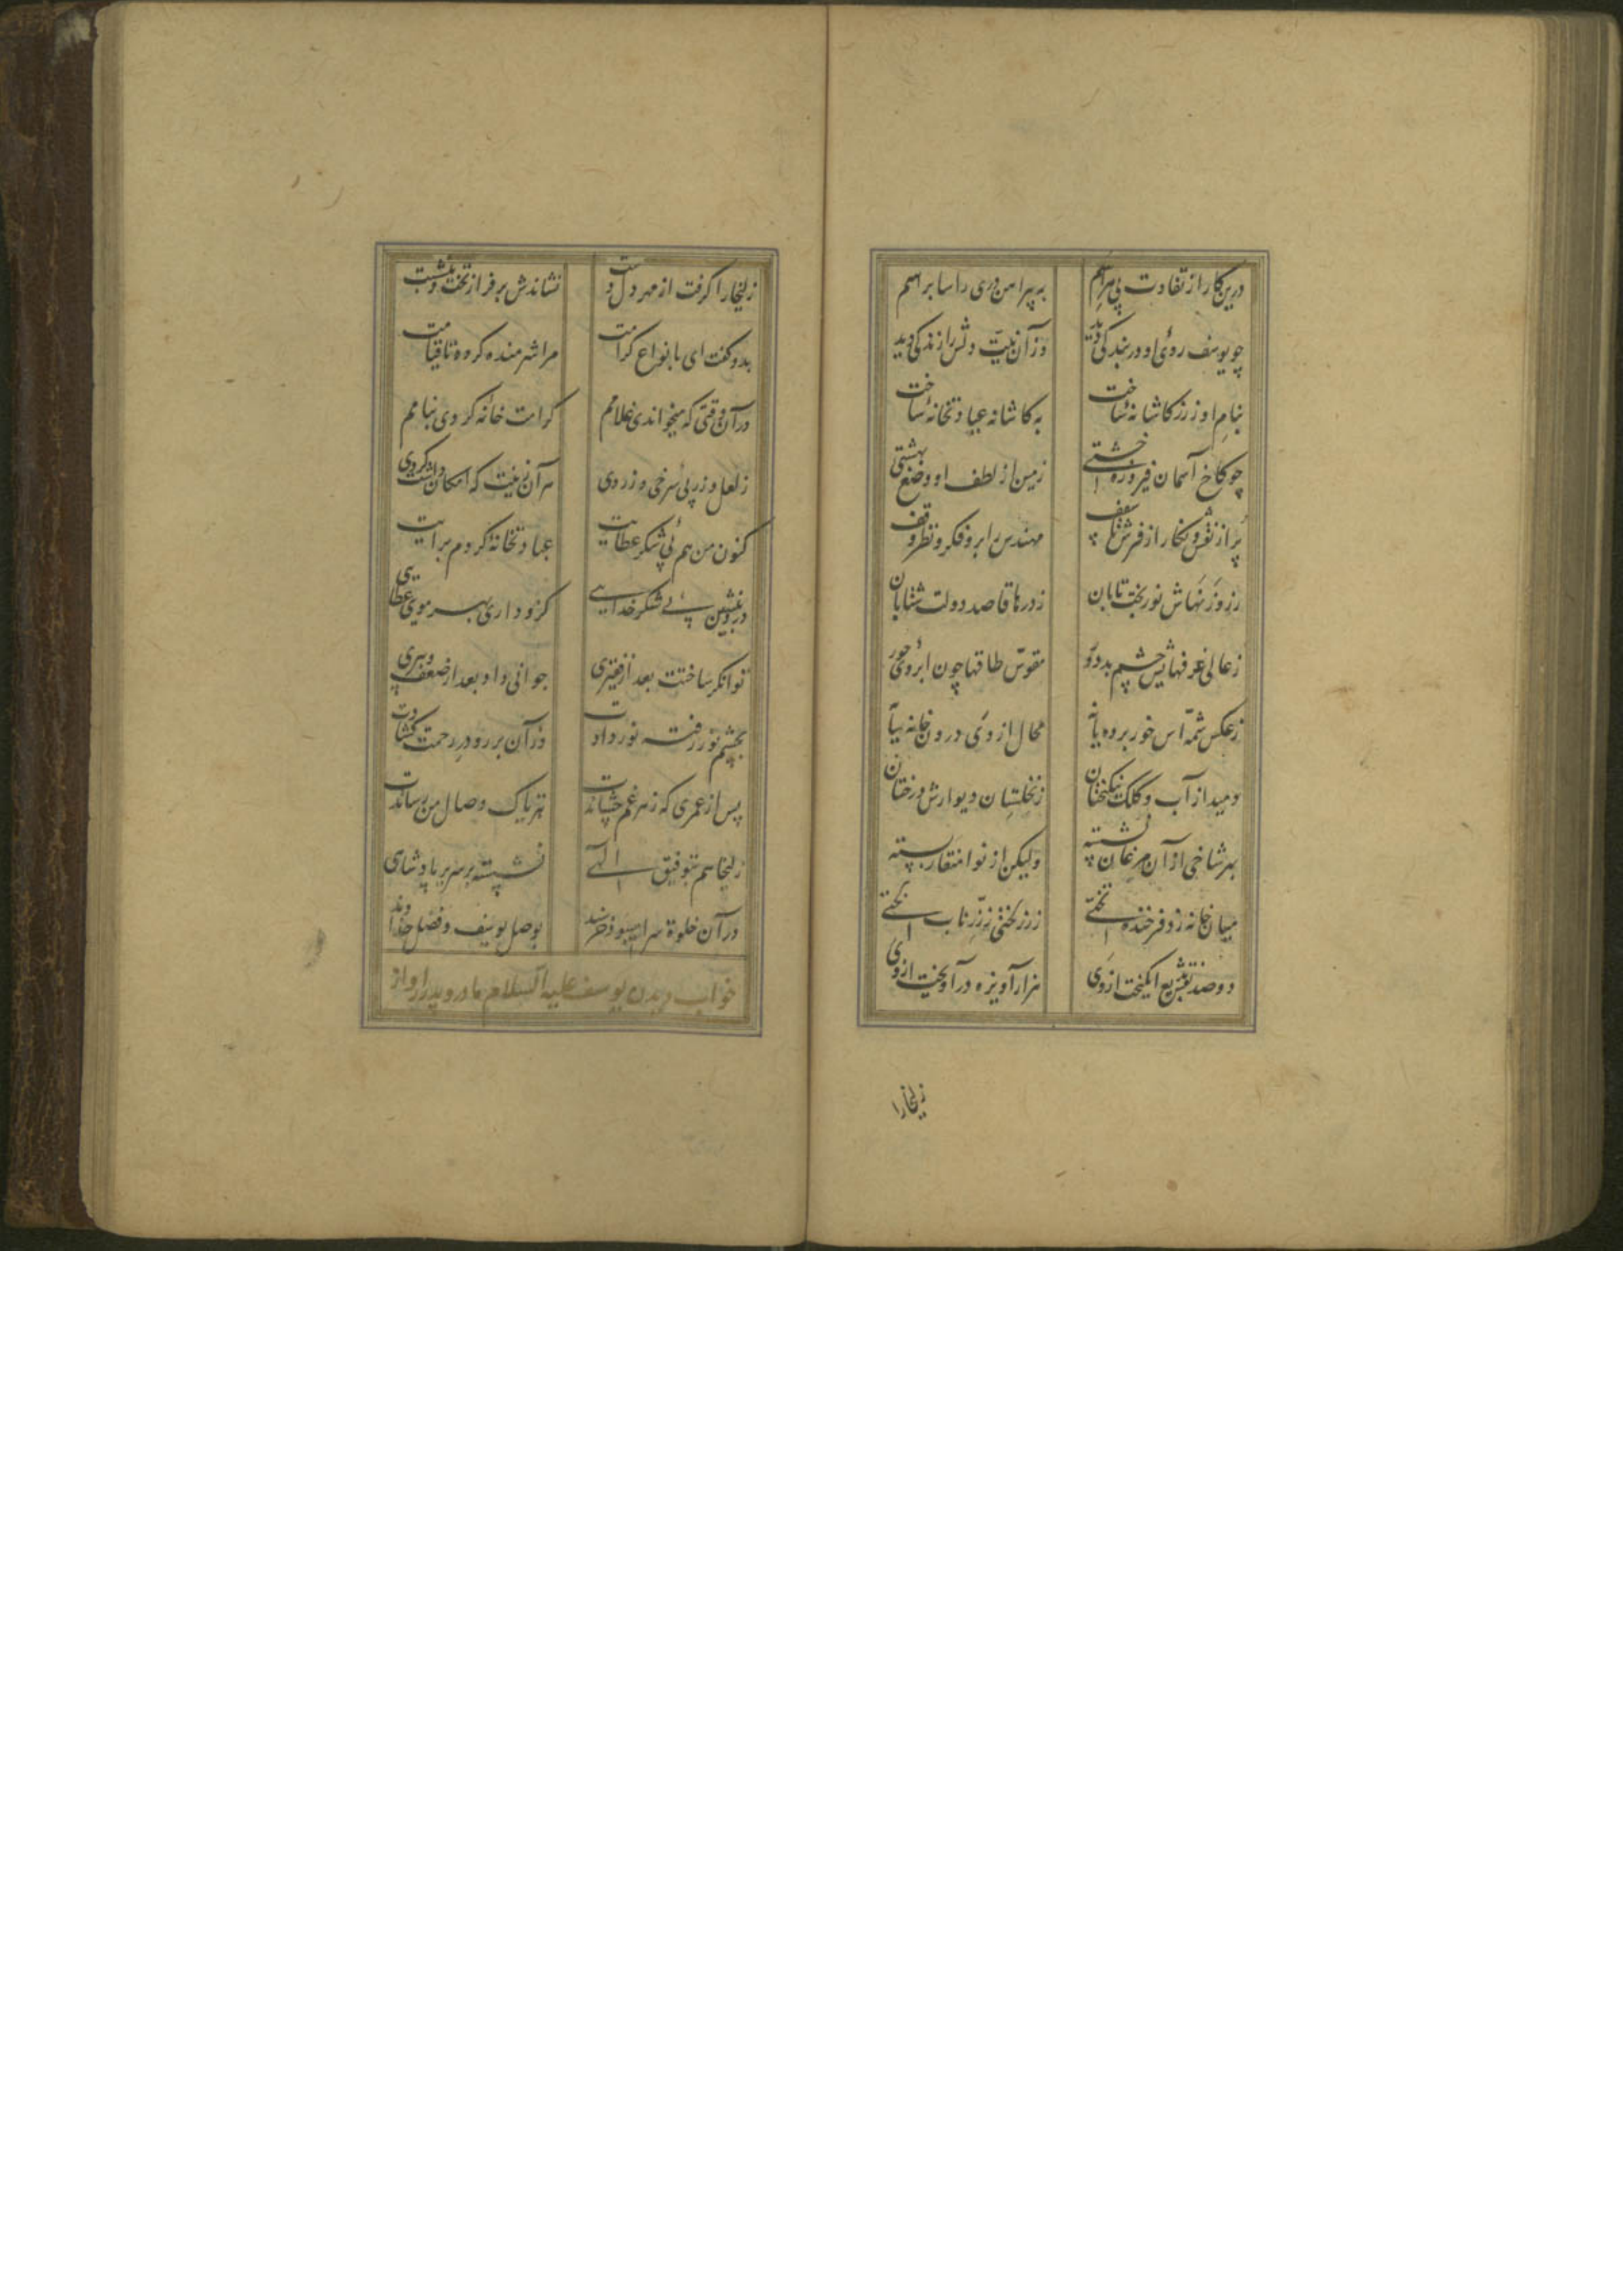 درین کار از تفاوت بی هراسم
به پیراهن دری راسا براسم
چو یوسف روی او در بندگی دید
وزآن نیت دلش را زندگی دید
بنام او ز زر کاشانهٔ ساخت
نه کاشانه عبادتخانهٔ ساخت
چو کاخ آسمان فیروزه خشتی
زمین از لطف او وضع بهشتی
پر از نقش و نگار از فرش تا سقف
مهندس را برو فکر و نظر وقف
ز روزنهاش نور بخت تابان
ز درها قاصد دولت شتابان
ز عالی غرفهایش چشم بد دور
مقوس طاقها چون ابروی حور
ز عکس شمهٔ آس خور برده مایه
محال از وی درون خانه سایه
دمید از آب و کلک نیکبختان
ز نخلستان دیوارش درختان
بهر شاخی از آن مرغان نشسته
ولیکن از نوا منقار بسته
میان خانه زد فرخنده تختی
ز زر تختی ز زر ناب لختی
دو صد نقش بدیع انگیخت از وی
هزار آویزه در آویخت از وی
زلیخا را
زلیخا را گرفت از مهر دل دست
نشاندش بر فراز تخت و بنشست
بدو گفت ای بانواع کرامت
مرا شرمنده کرده تا قیامت
در آن وقتی که میخواندی غلامم
کرامت خانهٔ کردی بنامم
ز لعل و زر پی سرخی و زردی
هر آن زینت که امکان داشت کردی
کنون من هم پی شکر عطایت
عبادتخانهٔ کردم برایت
درو بنشین پی شکر خدایی
کزو داری بهر مویی عطایی
توانگر ساختت بعد از فقیری
جوانی داد بعد از ضعف و پیری
بچشم نور رفته نور دادت
وزآن بر رو در رحمت گشادت
پس از عمری که زهر غم چشاندت
بتریاک وصال من رساندت
زلیخا هم بتوفیق الهی
نشسته بر سریر پادشاهی
در آن خلوة سرا میبود خرسند
بوصل یوسف و فضل خداوند
خواب دیدن یوسف علیه السلام مادر و پدر را و از